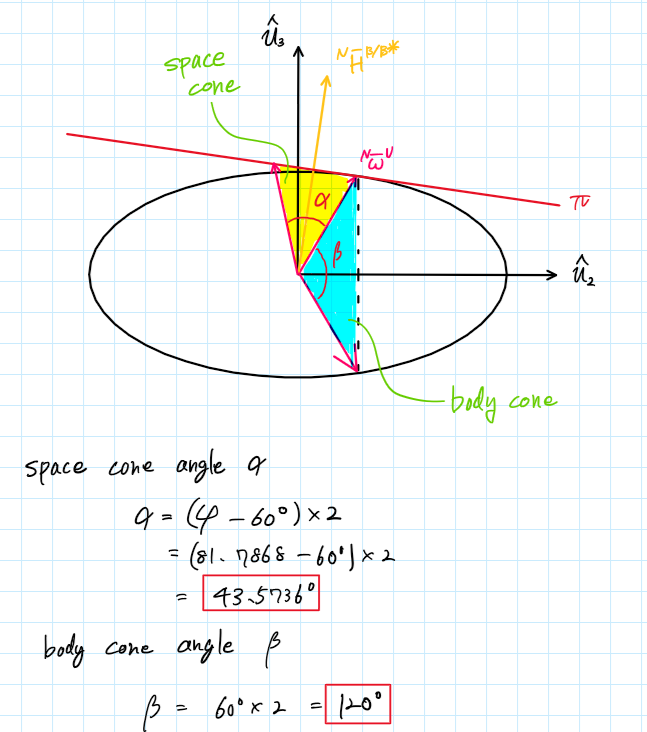 û₃
ᴺH̄ᴮ/ᴮ*
space
cone
ᴺω̄ᵁ
α
π
β
û₂
body cone
space cone angle α
α = (φ - 60°) × 2
= (81.7868 - 60°) × 2
= 43.5736°
body cone angle β
β = 60° × 2 = 120°